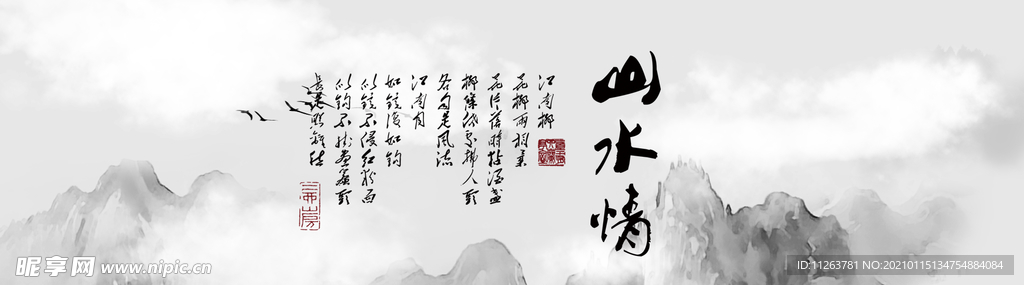 山水情
江南柳
花柳兩相柔
花片落時黏酒盞
柳條低處拂人頭
各自是風流
江南月
如鏡復如鉤
似鏡不侵紅粉面
似鉤不掛畫簾頭
長是照離愁
昵享网 www.nipic.cn
ID:11263781 NO:20210115134754884084